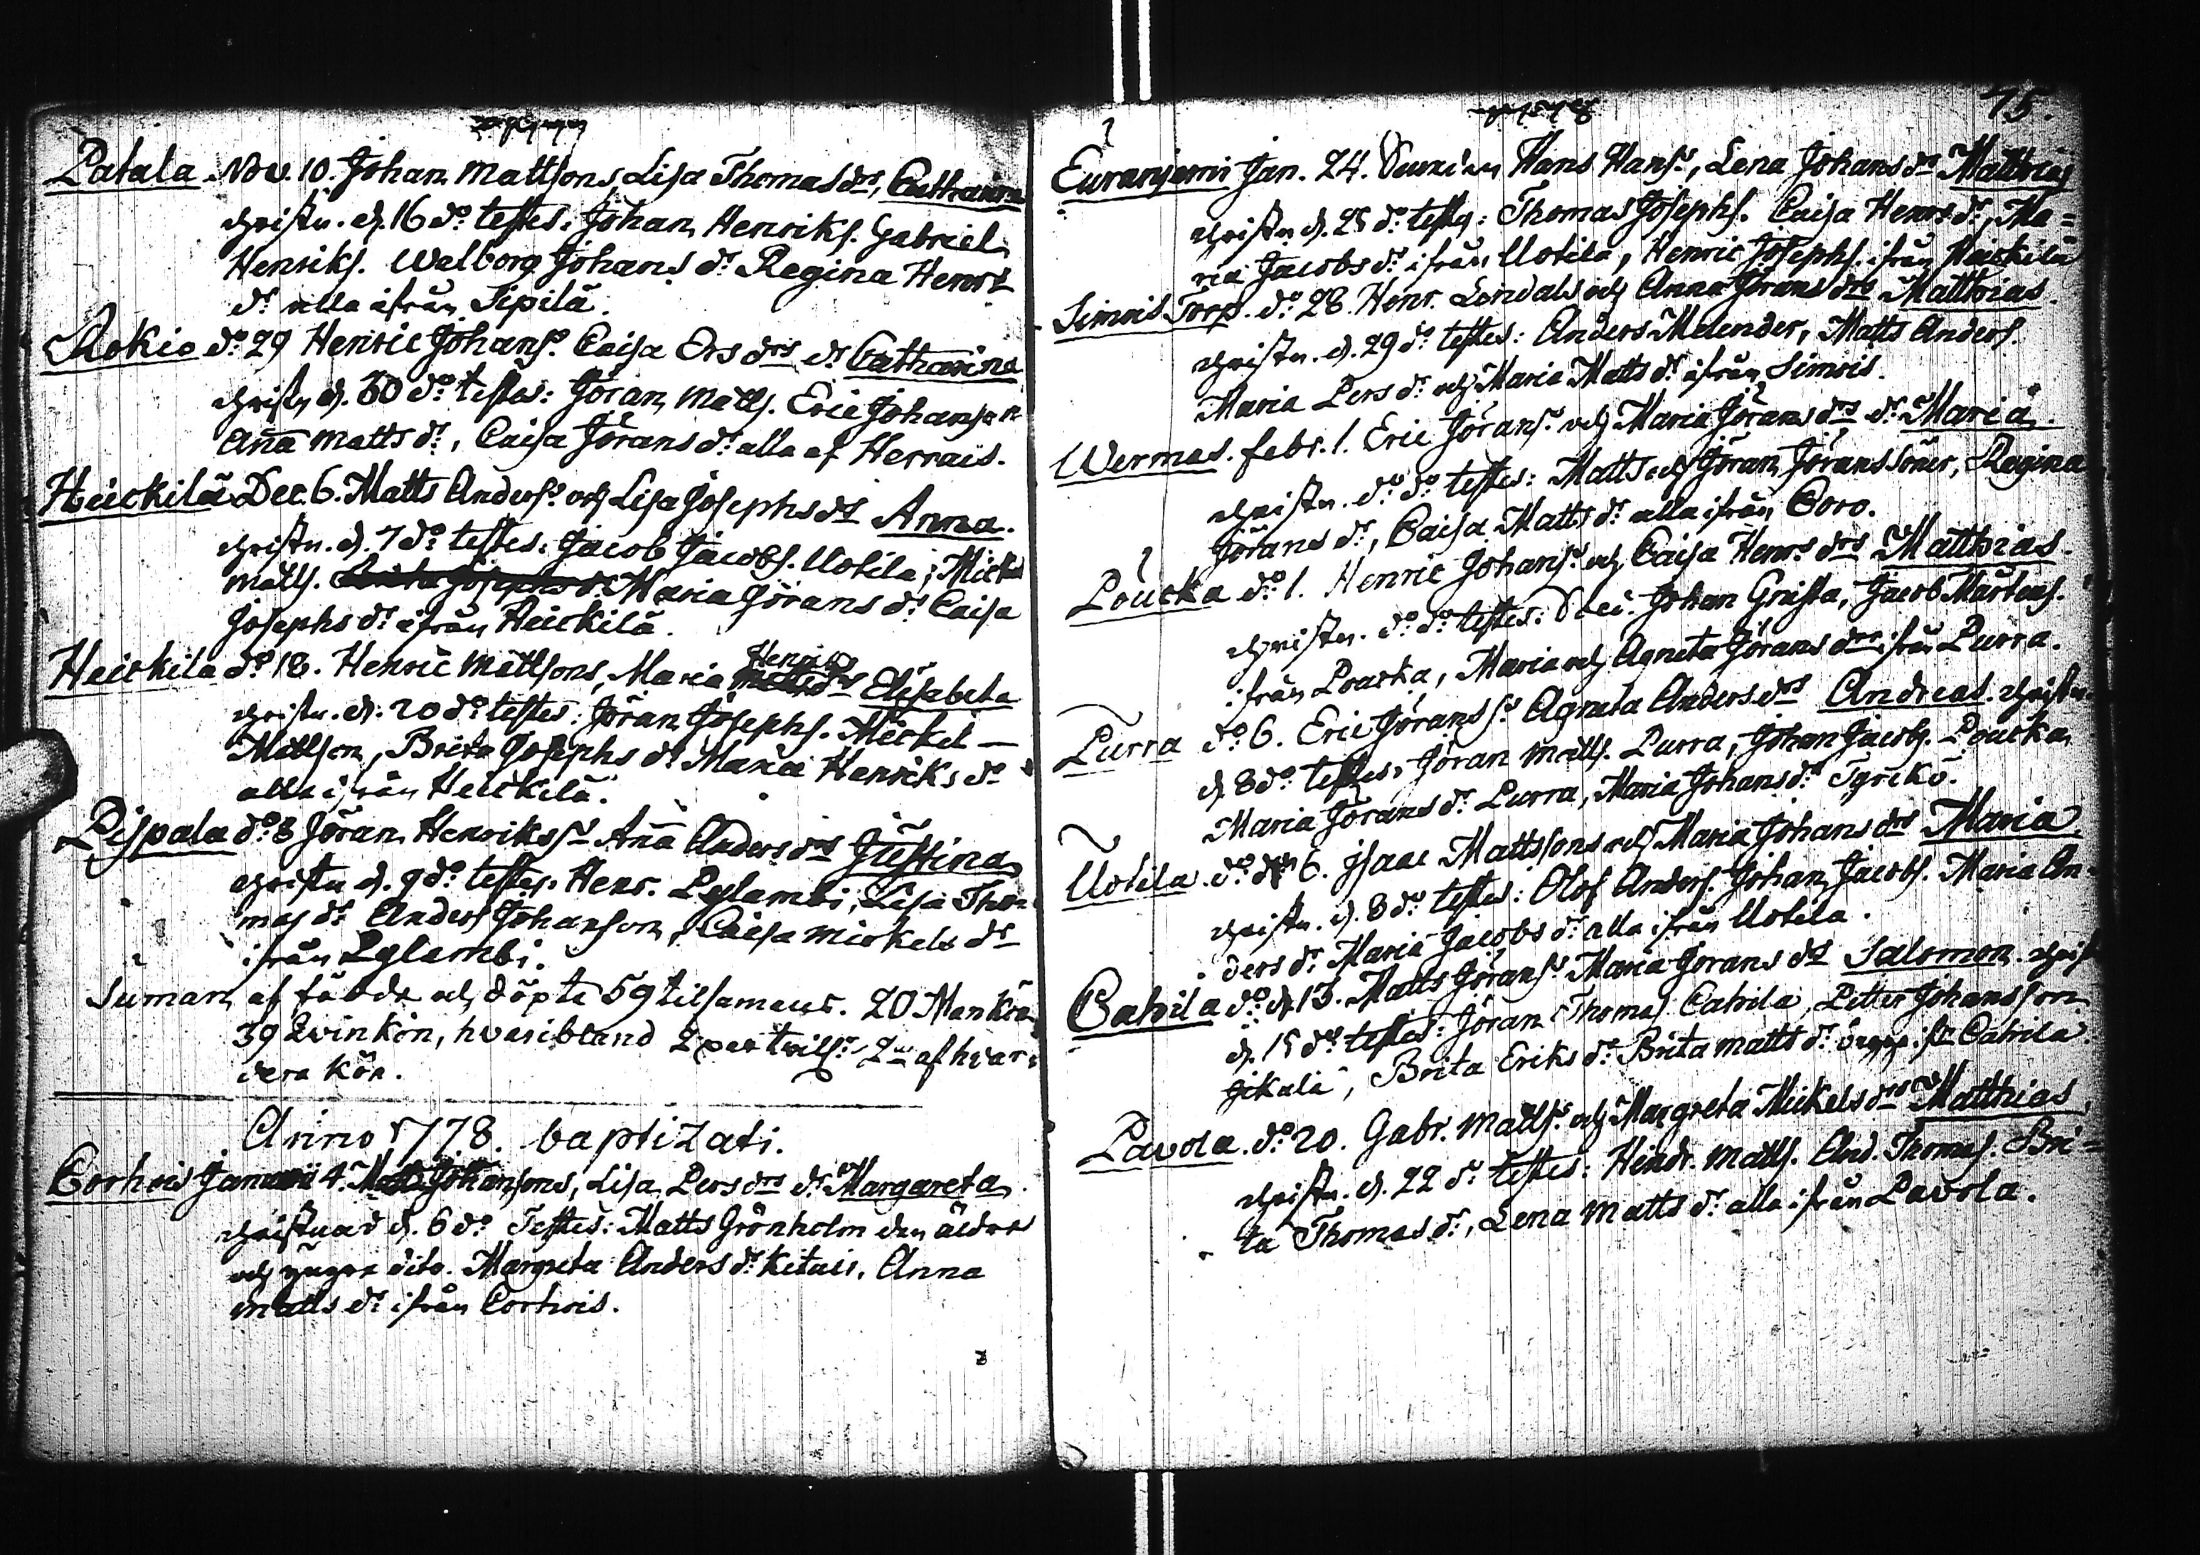 Patala. Nov. 10. Johan Mattsons, Lisa Thomas drs, Catharina
christn. d. 16 do testes: Johan Henriks. Gabriel
Henriks. Walborg Johans dr Regina Henrs
dr alla ifrån Sipilä.
Rokio do 29 Henric Johans. Caisa Ers drs dr Catharina
christn d. 30 do testes: Jöran Matts. Eric Johanson
Anna Matts dr, Caisa Jörans dr alla af Herrais.
Heickilä Dec. 6. Matts Anders. och Lisa Josephs dr Anna.
christn. d. 7 do testes: Jacob Jacobs. Uotila; Mickel
Matts. Maria Jörans dr Caisa
Josephs dr ifrån Heickilä.
Heickilä do 18. Henric Mattsons, Maria Henrics drs Elisabeta
christn. d. 20 do testes: Jöran Josephs. Mickel
Mattson, Brita Josephs dr Maria Henriks dr
alla ifrån Heickilä.
Pispala do 8 Jöran Henrikss. Anna Anders drs Justina
christn d. 9 do testes. Henr. Pylambi, Lisa Tho-
mas dr Anders Johanson, Caisa Mickels dr
ifrån Pylambi.
Suman af födde och döpte 59 tilsamans. 20 Mankön
39 Qvinkön, hvaribland 2 par af hvar-
dera kön.
Anno 1778. baptizati.
Corhois Januarii 4. Matts Johansons, Lisa Pers drs dr Margareta
christnad d. 6 do Testes: Matts Grönholm den äldre
och yngre dito. Margreta Anders dr Anna
Matts dr ifrån Corhois.
75.
Euranjemi Jan. 24. Hans Hans., Lena Johans dr Matthias
christn d. 25 do testes: Thomas Josephs. Caisa Henrs dr, Ma=
ria Jacobs dr ifrån Uotila, Henric Josephs. ifrån Heickilä
Simois Torp. do 28. Henr. och Anna Jörans drs Matthias.
christn. d. 29 do testes: Anders Melender, Matts Anders.
Maria Pers dr och Maria Matts dr ifrån Simois.
Wermas. febr. 1. Eric Jörans. och Maria Jörans drs dr Maria.
christn. do do testes: Matts och Jöran Jörans söner, Regina
Jörans dr, Caisa Matts dr alla ifrån Coro.
Poucka do 1. Henric Johans. och Caisa Henrs drs Matthias.
christn. do do testes: Johan Jacob Mårtens.
ifrån Poucka, Maria och Agneta Jörans ifrån Purra.
Purra do 6. Eric Jöranss. Agneta Anders drs Andreas. christn.
d. 8 do testes, Jöran Matts. Purra, Johan Jacobs. Poucka
Maria Jörans dr Purra, Maria Johans dr
Uotila. do 6. Isaac Mattssons och Maria Johans drs Maria
christn. d. 8 do testes: Olof Anders. Johan Jacobs. Maria An-
ders dr Maria Jacobs dr alla ifrån Uotila.
Catvila do d 13. Matts Jörans. Maria Jörans dr Salomon. christ
d. 15 do testes: Jöran Thomas. Catvila, Petter Johansson
Jikalä, Brita Eriks dr Brita Matts dr Catvila.
Pavola. do 20. Gabr. Matts. och Margreta Mickels drs Matthias,
christn. d. 22 do testes: Hindr. Matts. And. Thomas. Bri=
ta Thomas dr, Lena Matts dr alla ifrån Pavola.